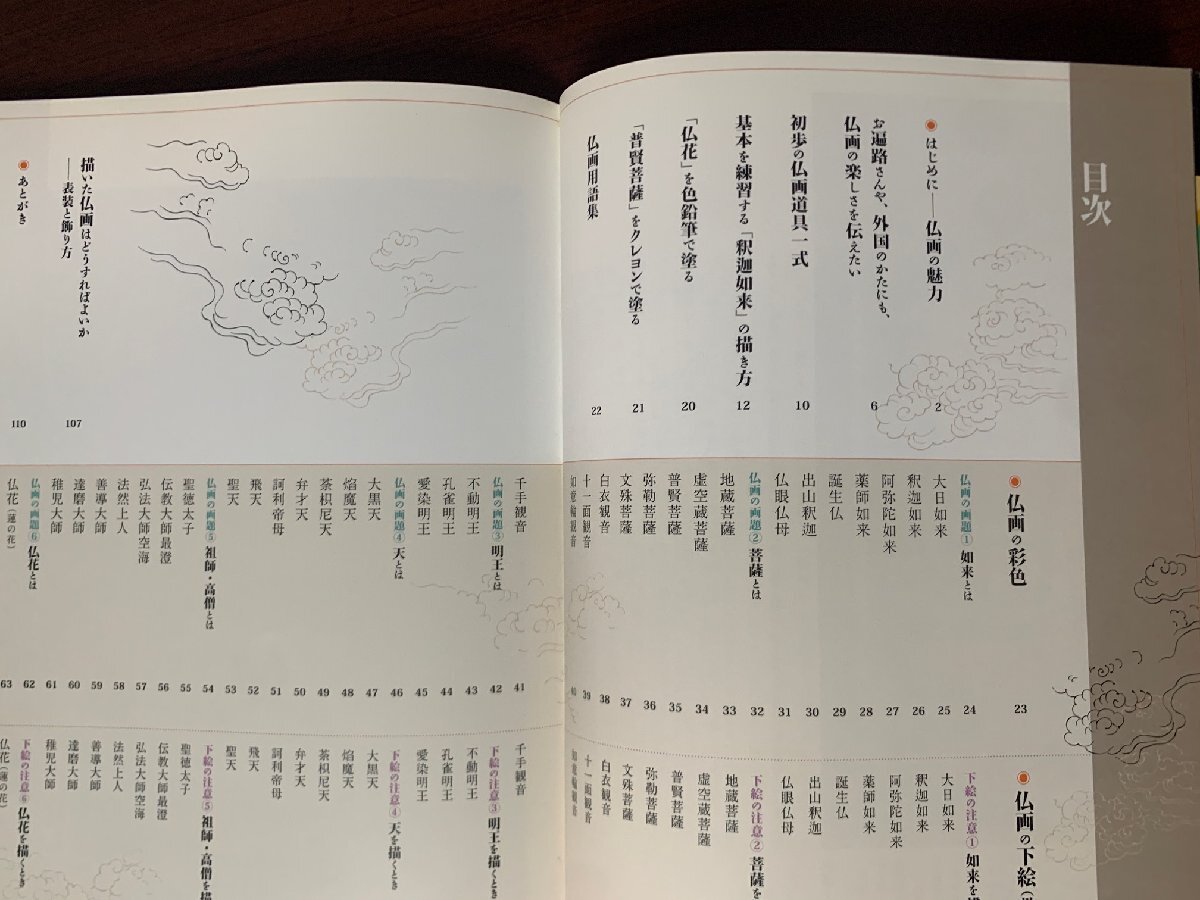 目次
はじめに――仏画の魅力 2
お遍路さんや、外国のかたにも、
仏画の楽しさを伝えたい 6
初歩の仏画道具一式 10
基本を練習する「釈迦如来」の描き方 12
「仏花」を色鉛筆で塗る 20
「普賢菩薩」をクレヨンで塗る 21
仏画用語集 22
描いた仏画はどうすればよいか
――表装と飾り方 107
あとがき 110
仏画の彩色 23
仏画の画題① 如来とは 24
大日如来 25
釈迦如来 26
阿弥陀如来 27
薬師如来 28
誕生仏 29
出山釈迦 30
仏眼仏母 31
仏画の画題② 菩薩とは 32
地蔵菩薩 33
虚空蔵菩薩 34
普賢菩薩 35
弥勒菩薩 36
文殊菩薩 37
白衣観音 38
十一面観音 39
如意輪観音 40
千手観音 41
仏画の画題③ 明王とは 42
不動明王 43
孔雀明王 44
愛染明王 45
仏画の画題④ 天とは 46
大黒天 47
焔魔天 48
荼枳尼天 49
弁才天 50
訶利帝母 51
飛天 52
聖天 53
仏画の画題⑤ 祖師・高僧とは 54
聖徳太子 55
伝教大師最澄 56
弘法大師空海 57
法然上人 58
善導大師 59
達磨大師 60
稚児大師 61
仏画の画題⑥ 仏花とは 62
仏花(蓮の花) 63
仏画の下絵
下絵の注意① 如来を
大日如来
釈迦如来
阿弥陀如来
薬師如来
誕生仏
出山釈迦
仏眼仏母
下絵の注意② 菩薩を
地蔵菩薩
虚空蔵菩薩
普賢菩薩
弥勒菩薩
文殊菩薩
白衣観音
十一面観音
如意輪観音
千手観音
下絵の注意③ 明王を描くとき
不動明王
孔雀明王
愛染明王
下絵の注意④ 天を描くとき
大黒天
焔魔天
荼枳尼天
弁才天
訶利帝母
飛天
聖天
下絵の注意⑤ 祖師・高僧を描
聖徳太子
伝教大師最澄
弘法大師空海
法然上人
善導大師
達磨大師
稚児大師
下絵の注意⑥ 仏花を描くとき
仏花(蓮の花)